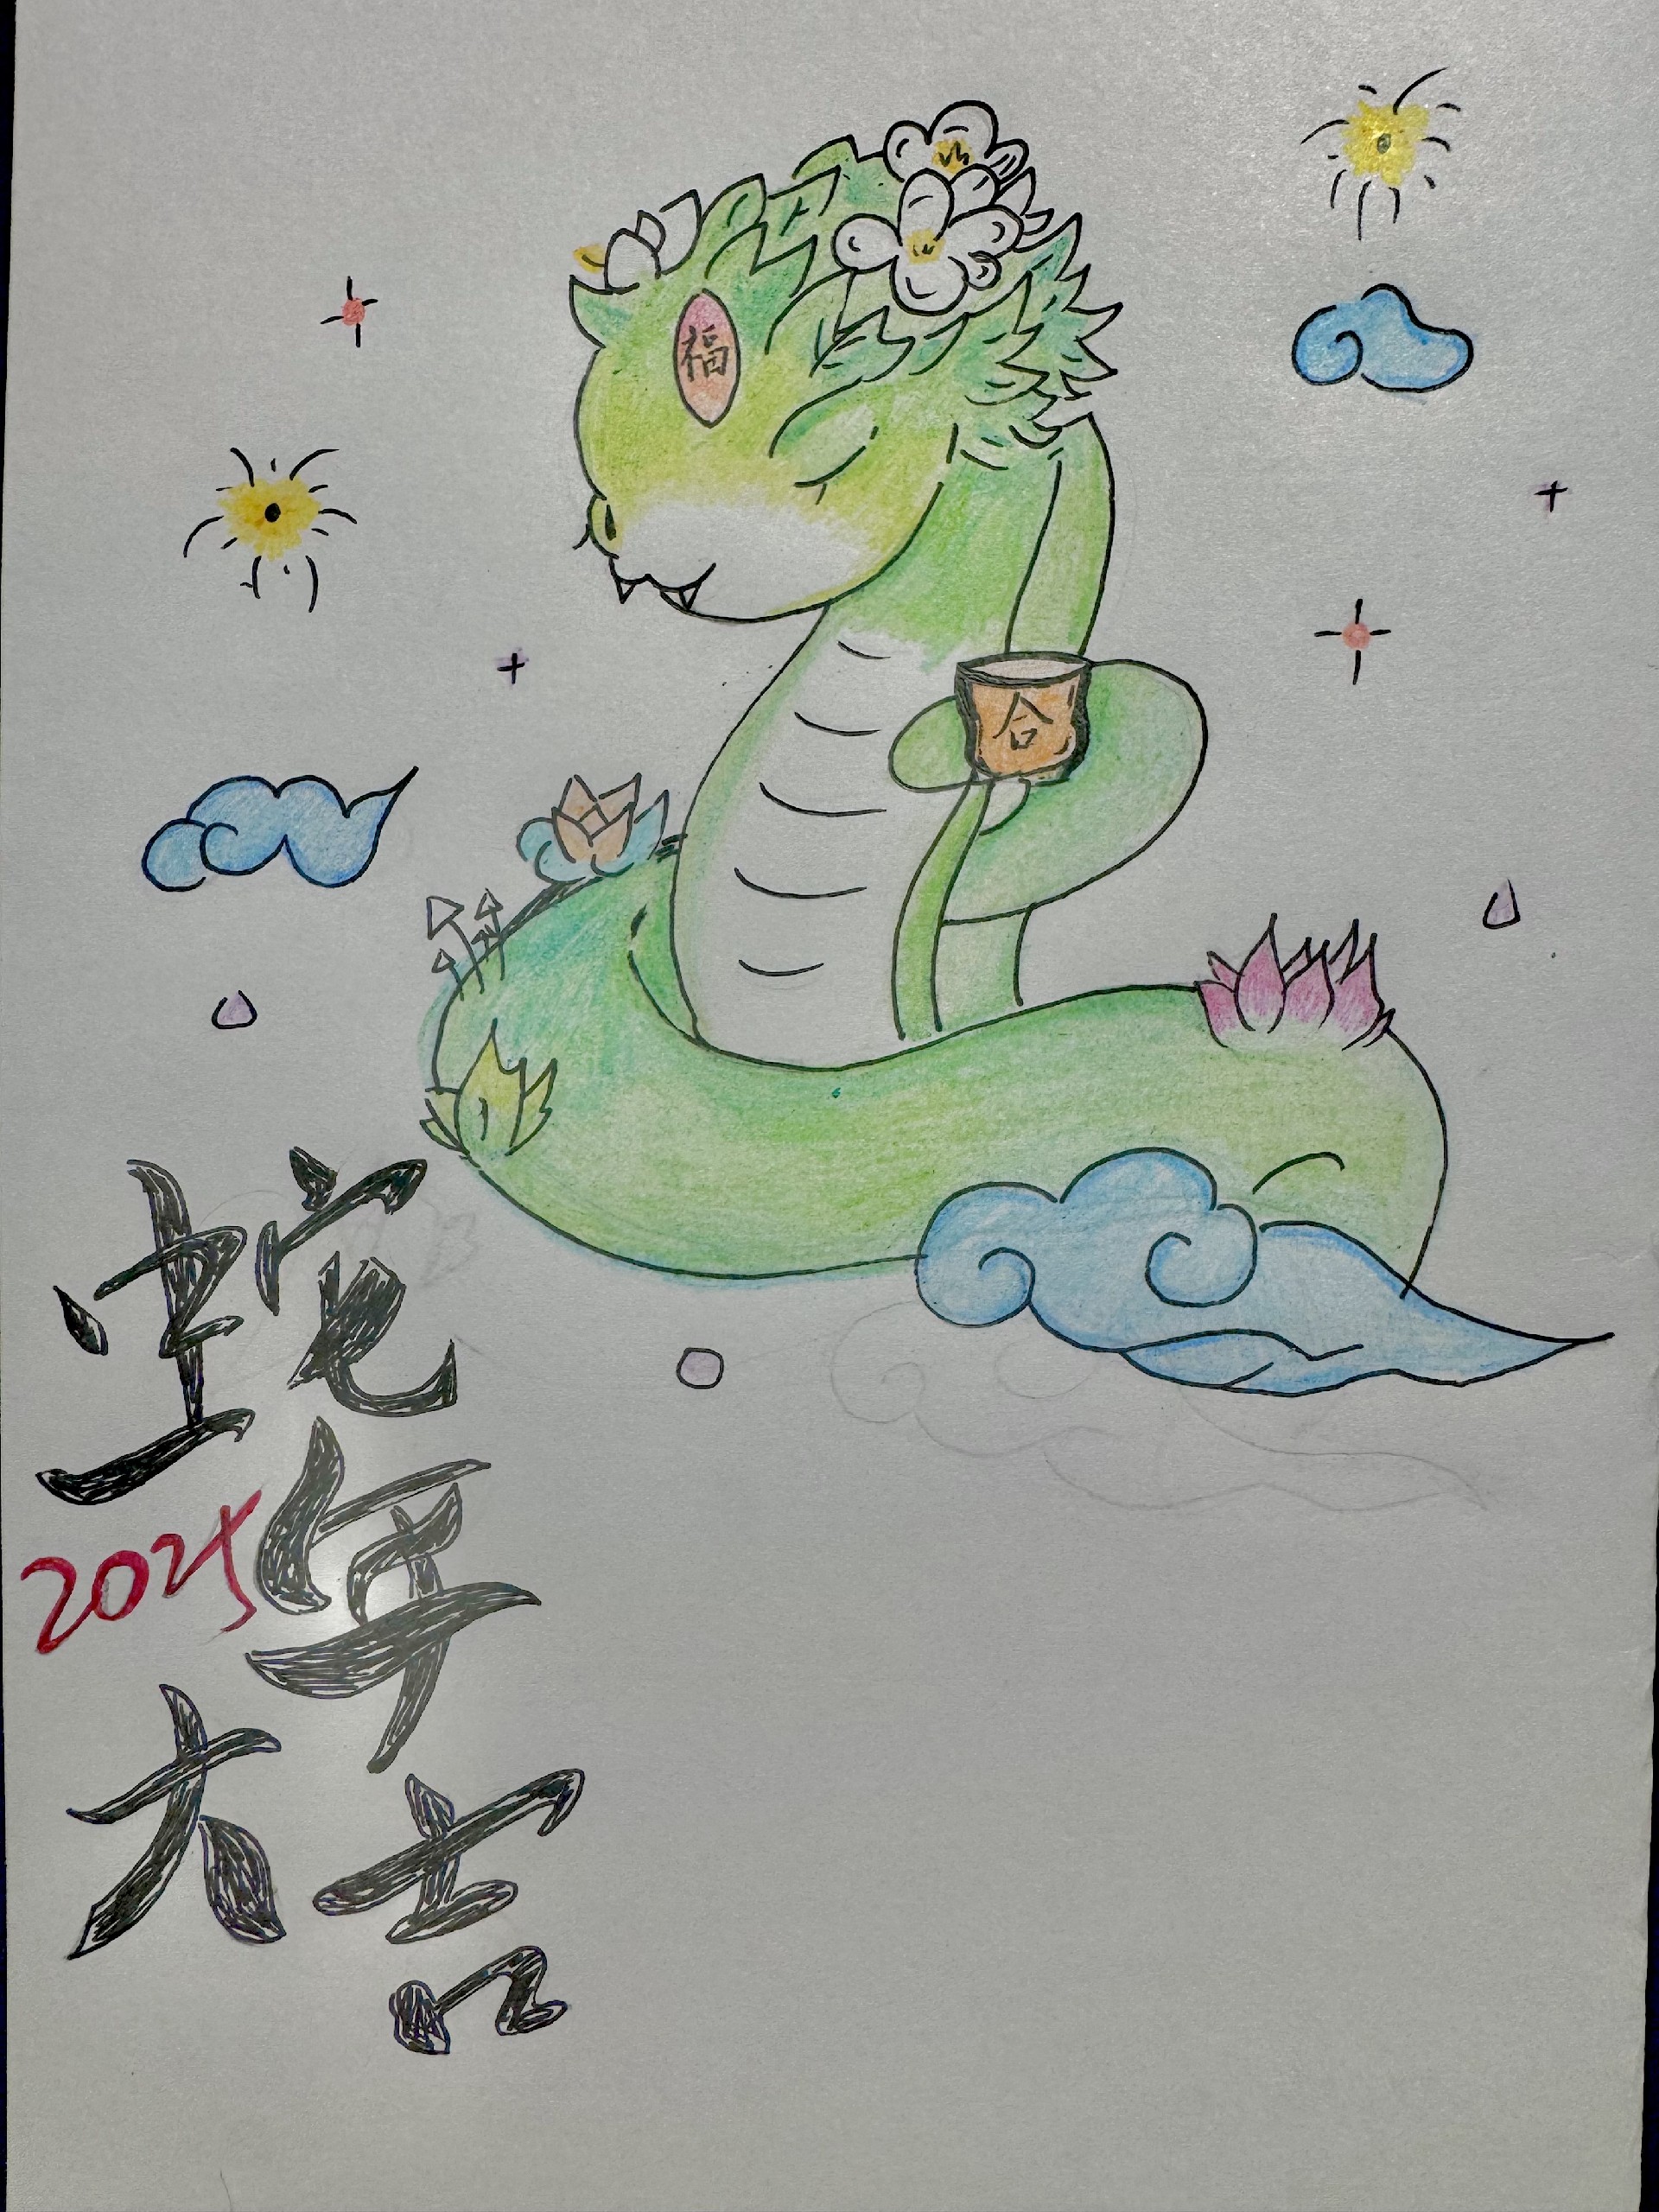 福
合
蛇
年
2025
大吉